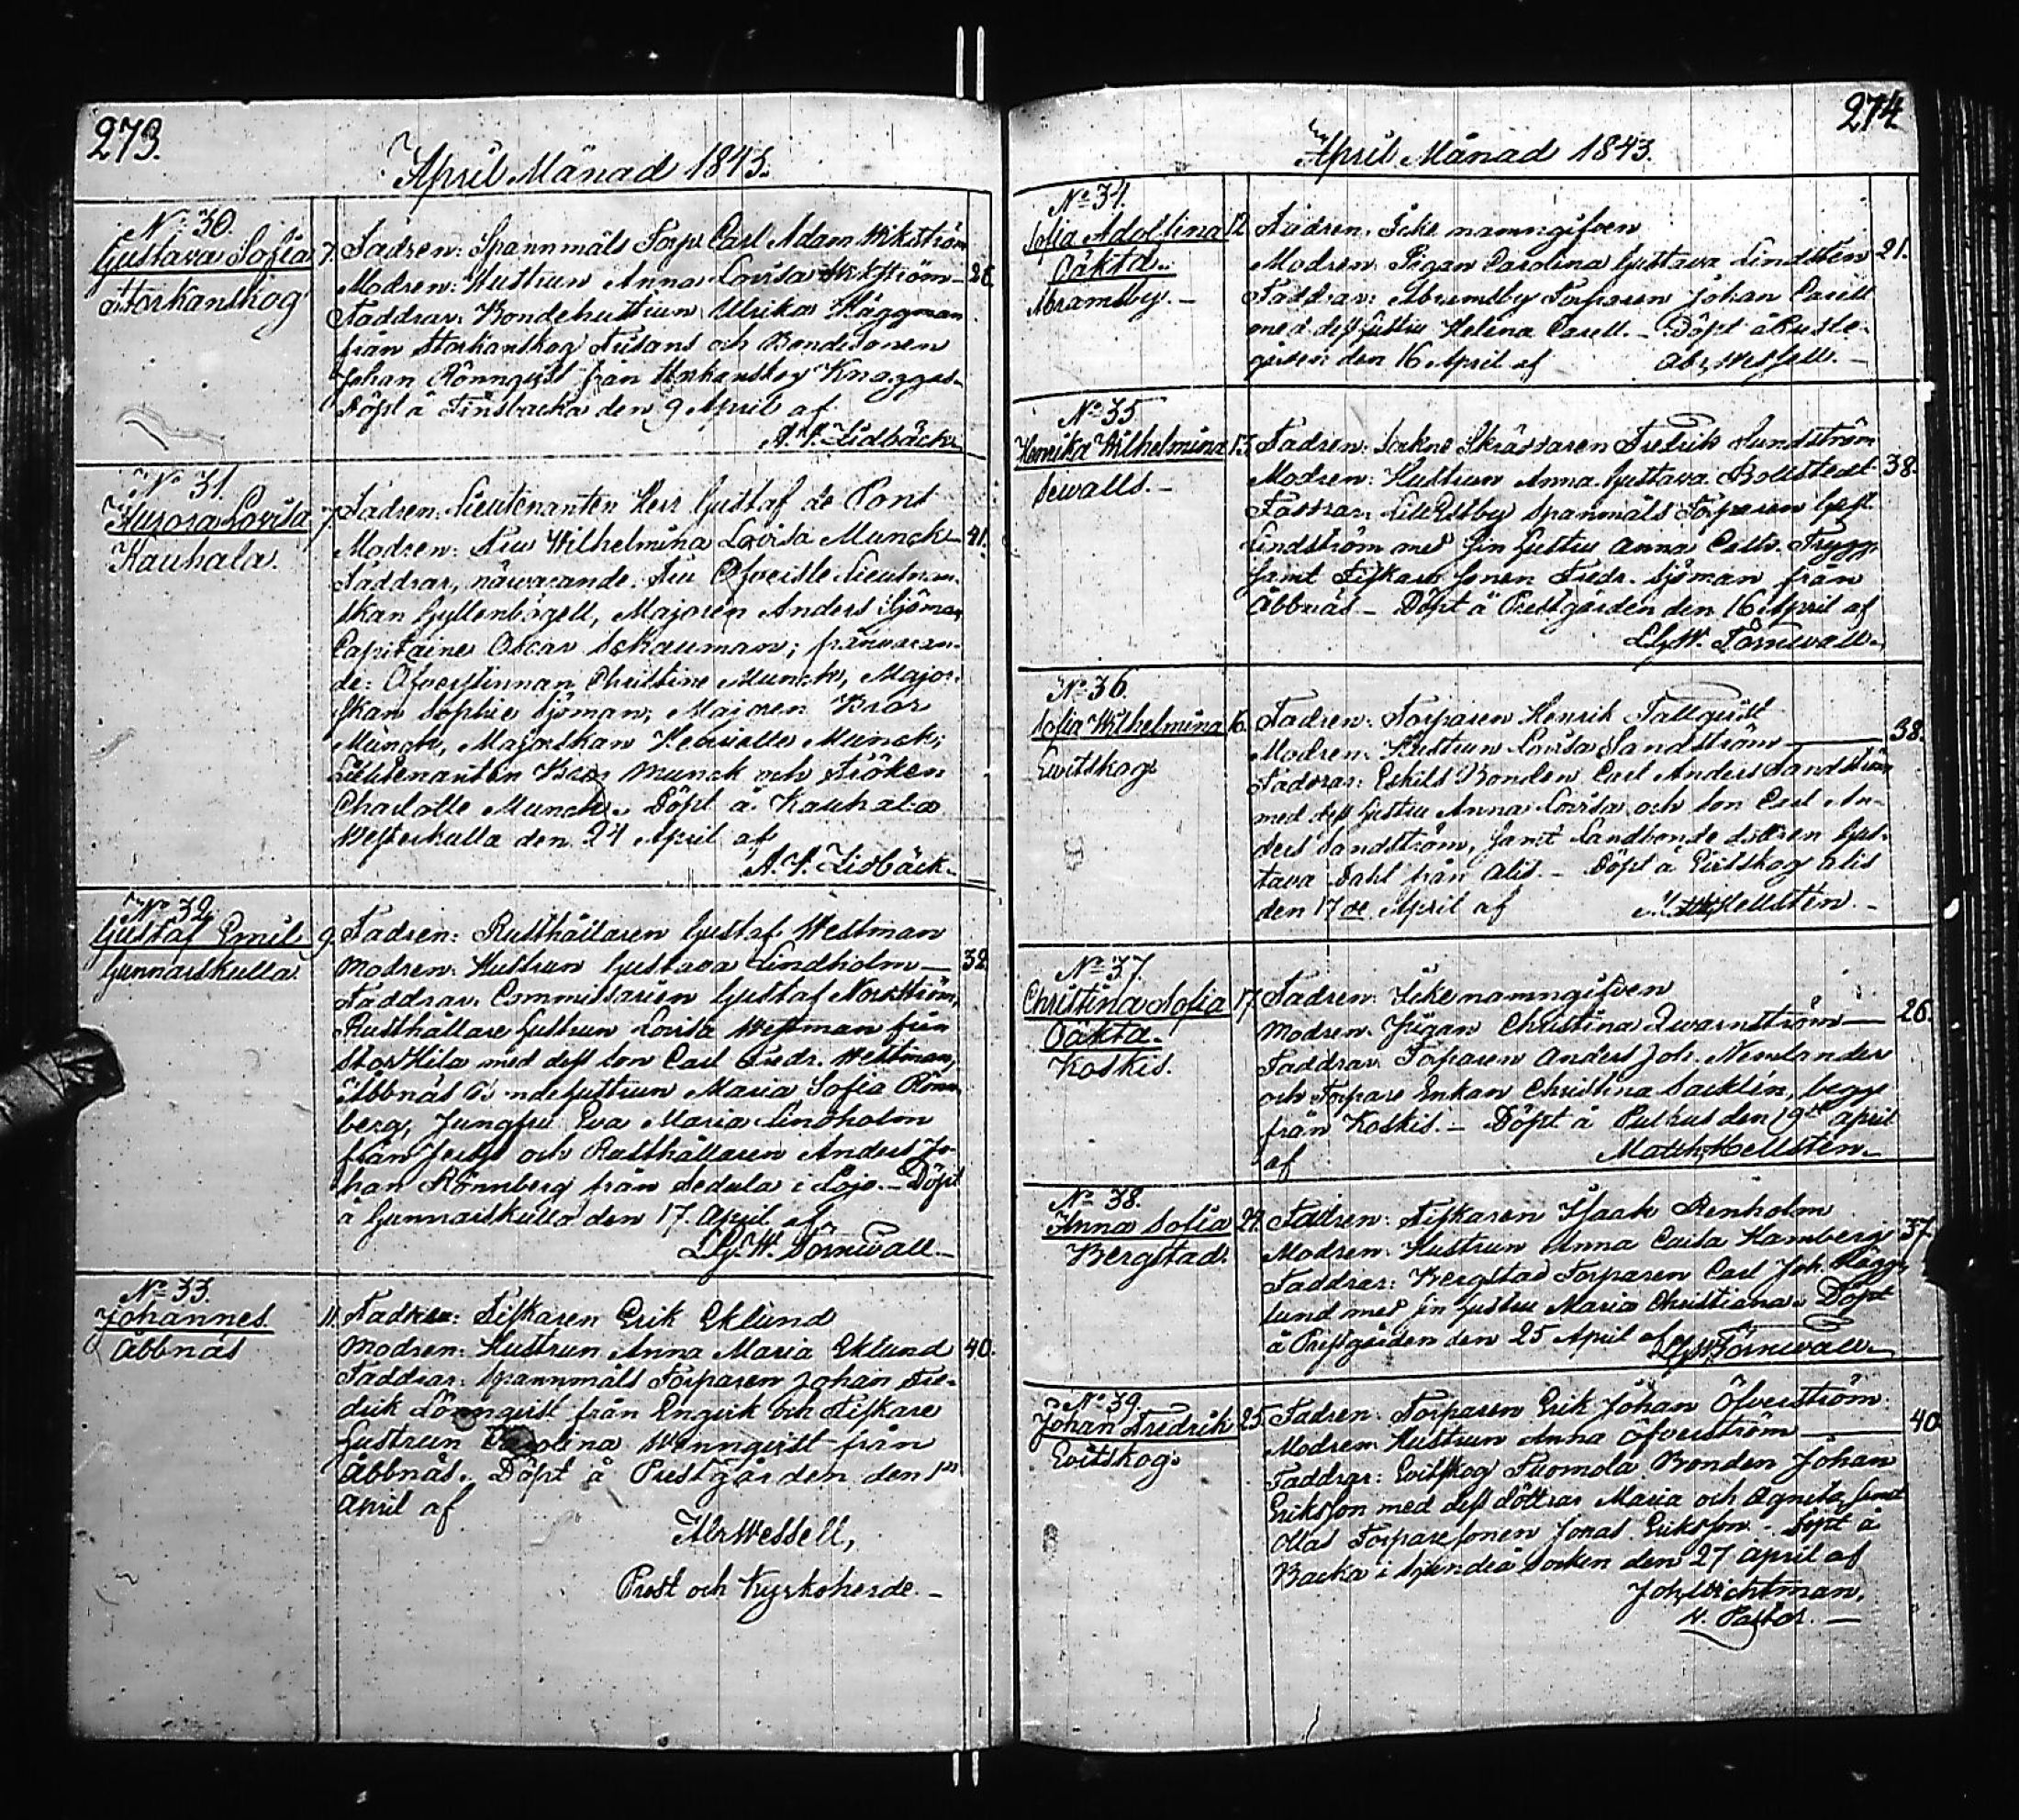 273.
April Månad 1843.
No 30.
Gustava Sofia
Storkanskog
7. Fadren: Spannmåls Torp. Carl Adam Wikström
Modren: Hustrun Anna Lovisa Wikström — 26.
Faddrar: Bondehustrun Ulrika Häggman
från Storkanskog Frisans och Bondesonen
Johan Rönnqvist från Storkanskog Knaggas.
Döpt å Finsbacka den 9 April af
A. F. Lidbäck
No 31.
Aurora Lovisa
Kauhala.
7. Fadren: Lieutenanten Herr Gustaf de Pont
Modren: Fru Wilhelmina Lovisa Munck — 41.
Faddrar, närwarande: Fru Öfverste Lieutnan-
skan Gyllenbögell, Majoren Anders Sjöman,
Capitaine Oscar Schauman; frånvaran-
de: Öfverstinnan Christine Munck, Major-
skan Sophie Sjöman, Majoren Bror
Munck, Majorskan Munck;
Lieutenanten Bror Munck och Fröken
Charlotte Munck. Döpt å Kauhala
Westerkulla den 24 April af
A. F. Lidbäck.
No 32.
Gustaf Emil
Gunnarskulla
9. Fadren: Rusthållaren Gustaf Westman
Modren: Hustrun Gustava Lindholm — 32
Faddrar: Commissarien Gustaf Norrström,
Rusthållare hustrun Lovisa Westman från
Stor Hila med dess son Carl Fredr. Westman,
Åbbnäs Bondehustrun Maria Sofia Rönn-
berg, Jungfru Eva Maria Lindholm
från och Rusthållaren Anders Jo-
han Rönnberg från Sedula i Lojo. — Döpt
å Gunnarskulla den 17. April af
W. Törnwall. —
No 33.
Johannes
Åbbnäs
11. Fadren: Fiskaren Erik Eklund
Modren: Hustrun Anna Maria Eklund 40.
Faddrar: Spannmåls Torparen Johan Fre-
drik Lönnqvist från Engvik och Fiskare
hustrun Carolina Wennqvist från
Åbbnäs. Döpt å Prestgården den
April af
Ab. Wessell,
Prost och Kyrkoherde. —
274
April Månad 1843.
No 34.
Sofia Adolfina
Oäkta.
Abramsby. —
12 Fadren: Icke namngifven
Modren: Pigan Carolina Gustava Lindsten 21.
Faddrar: Abramsby Torparen Johan Carell
med dess hustru Helena Carell. — Döpt å Preste-
gården den 16 April af Ab. Wessell. —
No 35
Henrika Wilhelmina
Sewalls. —
13. Fadren: Sockne Skräddaren Fredrik Sundström
Modren: Hustrun Anna Gustava Bollstedt 38.
Faddrar: Lill Estby Spanmåls Torparen Gust.
Lindström med sin hustru Anna Cath. Trygg
samt Fiskare sonen Fredr. Sjöman från
Åbbnäs. — Döpt å Prestgården den 16 April af
W. Törnwall.
No 36.
Sofia Wilhelmina
Evitskog
16. Fadren: Torparen Henrik Tallqvist
Modren: Hustrun Lovisa Sandström — 38.
Faddrar: Eskils Bonden Carl Anders Sandström
med dess hustru Anna Lovisa och son Carl An-
ders Sandström, samt Landbonde dottren Gus-
tava Dahl från Alis. — Döpt å Evitskog Alis
den 17de April af Hellsten. —
No 37.
Christina Sofia
Oäkta.
Koskis.
17. Fadren: Icke namngifven
Modren: Pigan Christina Qwarnström — 26.
Faddrar: Torparen Anders Joh. Newlander
och Torpare Enkan Christina Sacklin, begge
från Koskis. — Döpt å den 19de April
af Matth. Hellsten.
No 38.
Anna Sofia
Bergstad.
22. Fadren: Fiskaren Isaak Renholm
Modren: Hustrun Anna Caisa Hamberg 37.
Faddrar: Bergstad Torparen Carl Joh. Hägg-
lund med sin hustru Maria Christiana. Döpt
å Prestgården den 25 April af W. Törnwall.
No 39.
Johan Fredrik
Evitskog.
25. Fadren: Torparen Erik Johan Öfverström
Modren: Hustrun Anna Öfverström — 40
Faddrar: Evitskog Tuomola Bonden Johan
Eriksson med dess döttrar Maria och Agneta, samt
Ollas Torparesonen Jonas Eriksson. — Döpt å
Backa i Sjundeå Socken den 27 April af
Joh. Wichtman.
V. Pastor. —